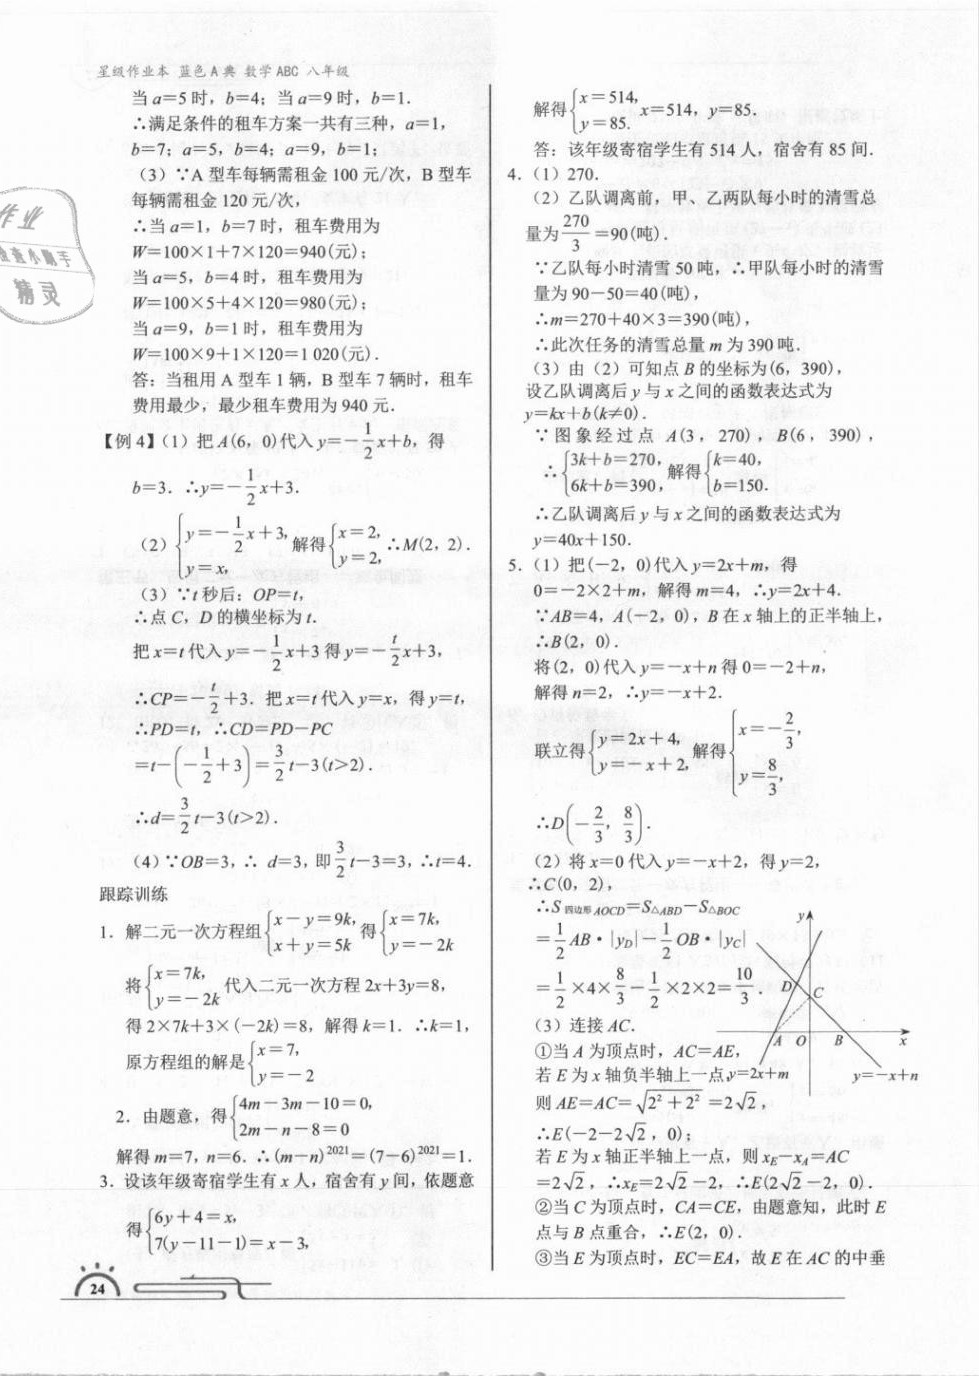 星级作业本 蓝色A典 数学ABC 八年级
当a=5时，b=4；当a=9时，b=1.
∴满足条件的租车方案一共有三种，a=1，
b=7；a=5，b=4；a=9，b=1；
（3）∵A型车每辆需租金100元/次，B型车
每辆需租金120元/次，
∴当a=1，b=7时，租车费用为
W=100×1+7×120=940(元)；
当a=5，b=4时，租车费用为
W=100×5+4×120=980(元)；
当a=9，b=1时，租车费用为
W=100×9+1×120=1 020(元).
答：当租用A型车1辆，B型车7辆时，租车
费用最少，最少租车费用为940元.
【例4】（1）把A(6，0)代入y=-1/2x+b，得
b=3．∴y=-1/2x+3.
（2）{y=-1/2x+3, y=x, 解得{x=2, y=2, ∴M(2，2).
（3）∵t秒后：OP=t，
∴点C，D的横坐标为t.
把x=t代入y=-1/2x+3得y=-t/2x+3,
∴CP=-t/2+3．把x=t代入y=x，得y=t,
∴PD=t，∴CD=PD-PC
=t-(-1/2+3)=3/2t-3(t>2).
∴d=3/2t-3(t>2).
（4）∵OB=3，∴ d=3，即3/2t-3=3，∴t=4.
跟踪训练
1．解二元一次方程组{x-y=9k, x+y=5k 得{x=7k, y=-2k
将{x=7k, y=-2k 代入二元一次方程2x+3y=8，
得2×7k+3×(-2k)=8，解得k=1．∴k=1，
原方程组的解是{x=7, y=-2
2．由题意，得{4m-3m-10=0, 2m-n-8=0
解得m=7，n=6．∴(m-n)^2021=(7-6)^2021=1.
3．设该年级寄宿学生有x人，宿舍有y间，依题意
得{6y+4=x, 7(y-11-1)=x-3,
24
解得{x=514, y=85. x=514，y=85.
答：该年级寄宿学生有514人，宿舍有85间.
4．（1）270.
（2）乙队调离前，甲、乙两队每小时的清雪总
量为270/3=90(吨)，
∵乙队每小时清雪50吨，∴甲队每小时的清雪
量为90-50=40(吨)，
∴m=270+40×3=390(吨)，
∴此次任务的清雪总量m为390吨.
（3）由（2）可知点B的坐标为(6，390)，
设乙队调离后y与x之间的函数表达式为
y=kx+b(k≠0).
∵图象经过点 A(3，270)，B(6，390)，
∴{3k+b=270, 6k+b=390, 解得{k=40, b=150.
∴乙队调离后y与x之间的函数表达式为
y=40x+150.
5．（1）把(-2，0)代入y=2x+m，得
0=-2×2+m，解得m=4，∴y=2x+4.
∵AB=4，A(-2，0)，B在x轴上的正半轴上，
∴B(2，0).
将(2，0)代入y=-x+n得0=-2+n，
解得n=2，∴y=-x+2.
联立得{y=2x+4, y=-x+2, 解得{x=-2/3, y=8/3,
∴D(-2/3，8/3).
（2）将x=0代入y=-x+2，得y=2，
∴C(0，2)，
∴S四边形AOCD=S△ABD-S△BOC
=1/2AB·|yD|-1/2OB·|yC|
=1/2×4×8/3-1/2×2×2=10/3.
（3）连接AC.
①当A为顶点时，AC=AE，
若E为x轴负半轴上一点，
则AE=AC=√(2²+2²)=2√2，
∴E(-2-2√2，0)；
若E为x轴正半轴上一点，则xE-xA=AC
=2√2，∴xE=2√2-2，∴E(2√2-2，0).
②当C为顶点时，CA=CE，由题意知，此时E
点与B点重合，∴E(2，0).
③当E为顶点时，EC=EA，故E在AC的中垂
y
D
C
A O B x
y=2x+m
y=-x+n
作业
检查小助手
精灵